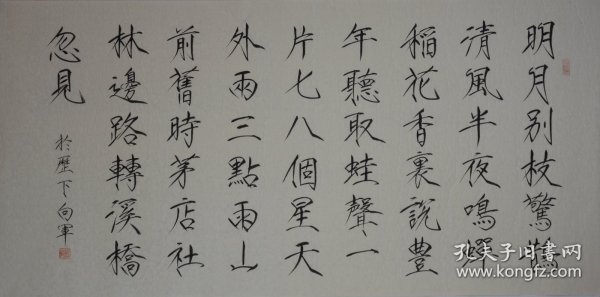 明月别枝驚鵲
清風半夜鳴蟬
稻花香裏說豊
年聽取蛙聲一
片七八個星天
外雨三點雨山
前舊時茅店社
林邊路轉溪橋
忽見
於歷下向軍
孔夫子旧书网
www.kongfz.com